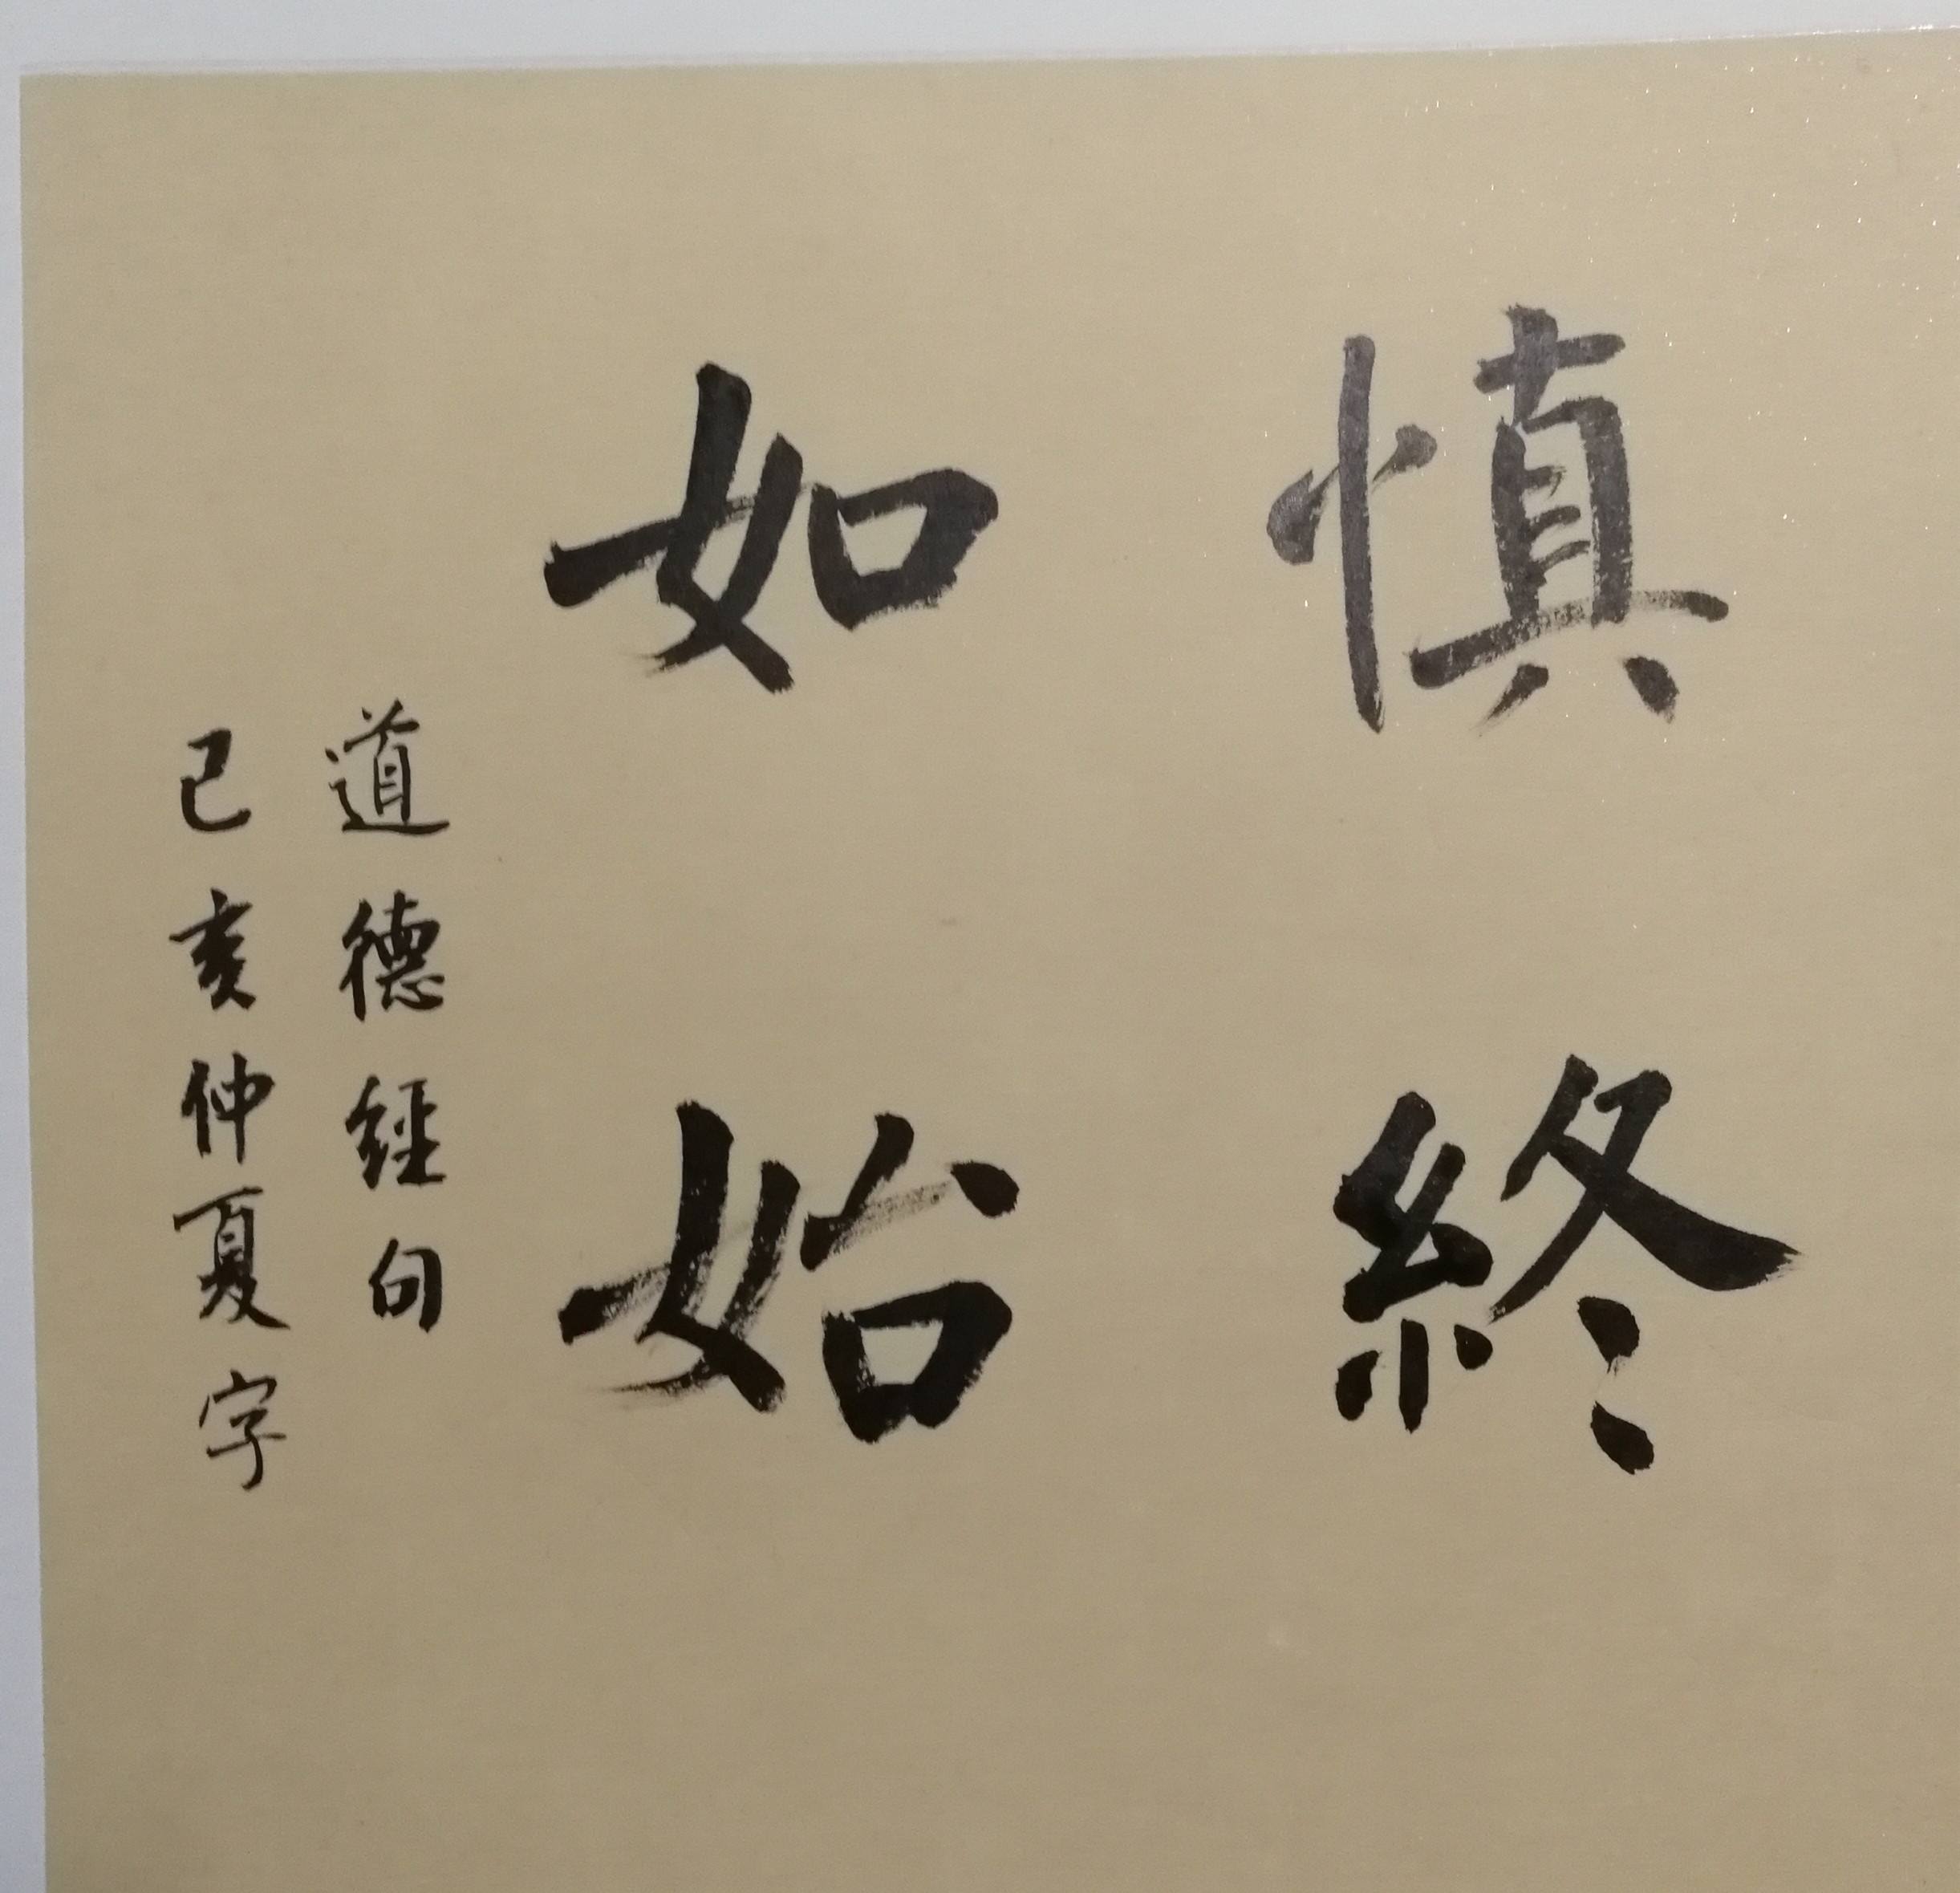 慎終
如始
道德經句
己亥仲夏字